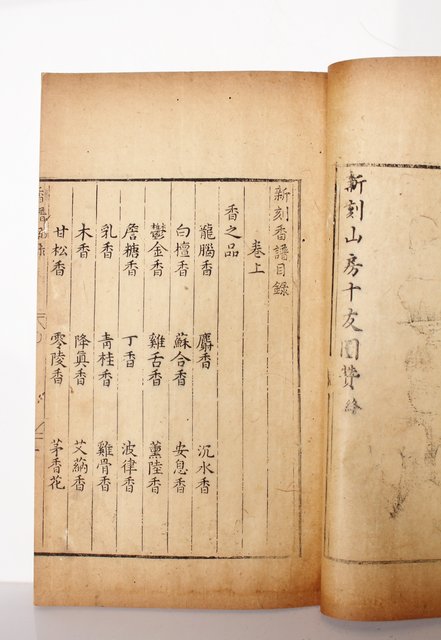 新刻山房十友圖贊終
新刻香譜目錄
卷上
香之品
龍腦香 麝香 沉水香
白檀香 蘇合香 安息香
鬱金香 雞舌香 薰陸香
詹糖香 丁香 波律香
乳香 青桂香 雞骨香
木香 降真香 艾蒳香
甘松香 零陵香 茅香花